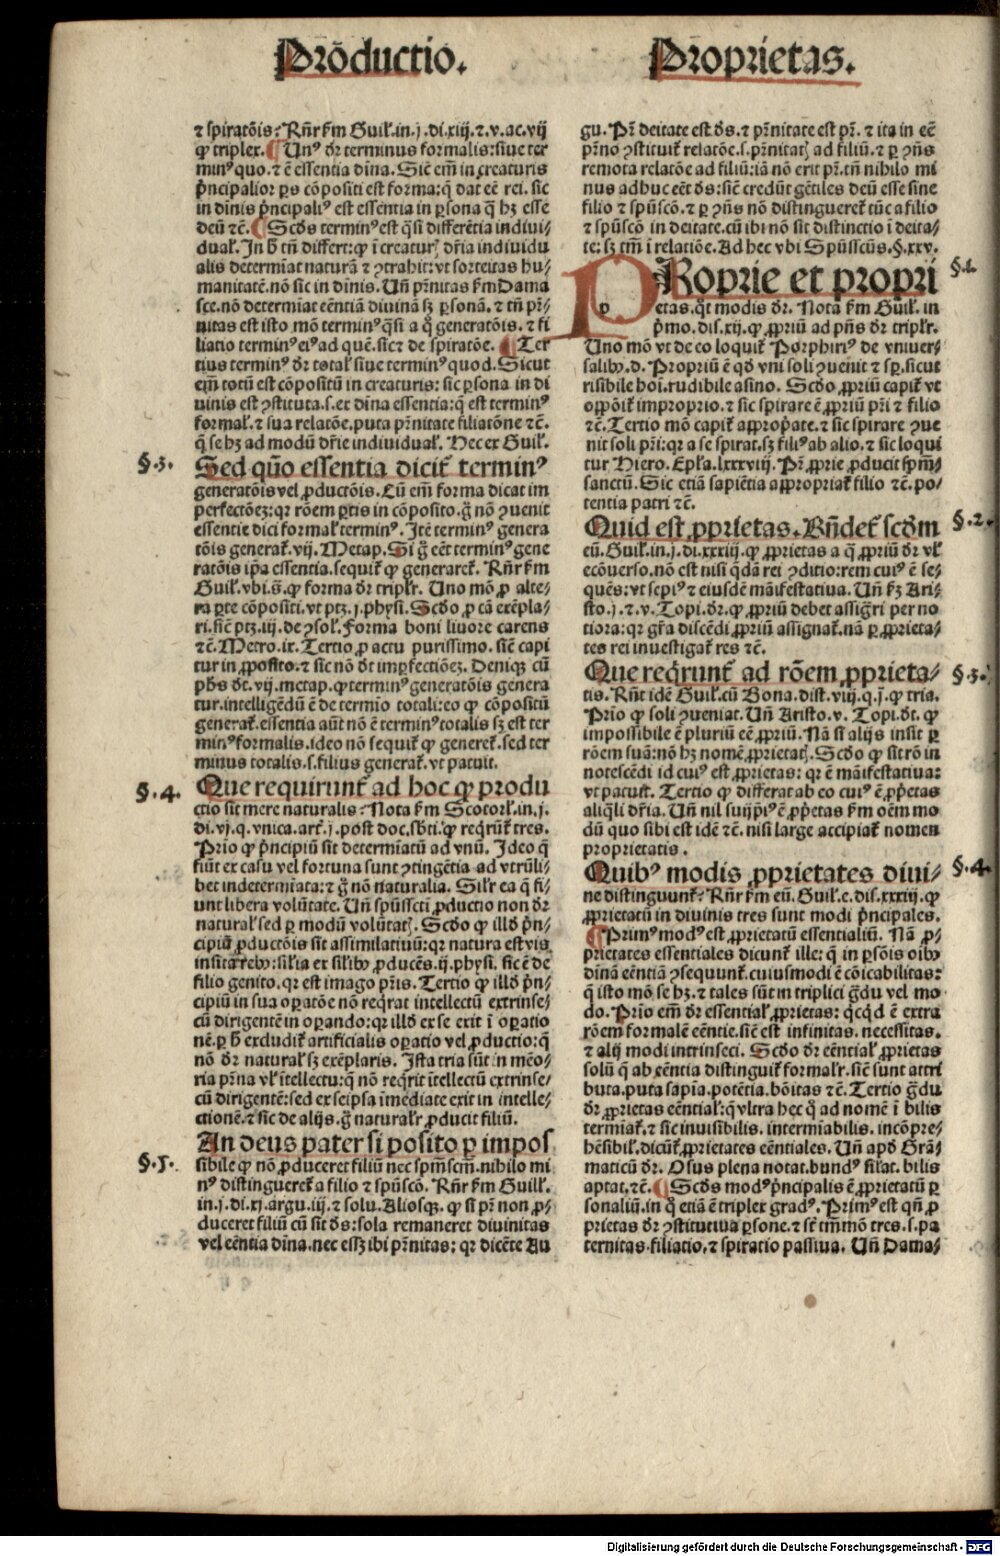 Prōductio.
⁊ spiratōis? Rn̄r ẜm Guil̄. in .j. di. xiij. ⁊ .v. ac. vij
ꝙ triplex. ¶ Unꝰ dr̄ terminus formalis: siue ter
minꝰ quo. ⁊ ē essentia dīna. Sic̄ em̄ in creaturis
p̄ncipalior ꝑs cōpositi est forma: q̄ dat eē rei. sic
in dīnis p̄ncipaliꝰ est essentia in ꝑsona q̄ hꝫ esse
deū ⁊c̄. ¶ Scd̄s terminꝰ est q̄si differētia indiui-
dual̄. In h̄ tn̄ differt: ꝙ ī creaturꝭ dr̄ia indiuidu
alis determīat naturā ⁊ ꝯtrahit: vt sorteitas hu-
manitatē. nō sic in dīnis. Un̄ pr̄nitas ẜm Dama
sce. nō determīat eēntiā diuinā sꝫ ꝑsonā. ⁊ tn̄ pr̄-
nitas est isto mō terminꝰ q̄si a q̊ generatōis. ⁊ fi
liatio terminꝰ eiꝰ ad quē. sic ⁊ de spiratōe. ¶ Ter
tius terminꝰ dr̄ total̄ siue terminꝰ quod. Sicut
em̄ totū est cōpositū in creaturis: sic ꝑsona in di
uinis est ꝯstituta. s. ex dīna essentia: q̄ est terminꝰ
formal̄. ⁊ sua relatōe. puta pr̄nitate filiatōne ⁊c̄.
q̄ se hꝫ ad modū dr̄ie indiuidual̄. Nec ex Guil̄.
§.3.
Sed quō essentia dicit̄ terminꝰ
generatōis vel ꝓductōis. Cū em̄ forma dicat im
perfectōeꝫ: qr rōem ꝑtis in cōposito. g̊ nō ꝯuenit
essentie dici formal̄ terminꝰ. Itē terminꝰ genera
tōis generat̄. vij. Metap. Si g̊ eēt terminꝰ gene
ratōis ip̄a essentia. sequit̄ ꝙ generaret̄. Rn̄r ẜm
Guil̄. vbi. s̄. ꝙ forma dr̄ tripl̄r. Uno mō ꝓ alte-
ra ꝑte cōpositi. vt ptꝫ .j. physi. Scd̊o ꝓ cā exēpla-
ri. sic̄ ptꝫ .iij. de ꝯsol̄. Forma boni liuore carens
⁊c̄. Metro. ix. Tertio ꝓ actu purissimo. sic̄ capi
tur in ꝓposito. ⁊ sic nō dt̄ imꝑfectiōeꝫ. Deniqꝫ cū
ph̄s dt̄. vij. metap. ꝙ terminꝰ generatōis genera
tur. intelligēdū ē de termīo totali: eo ꝙ cōpositū
generat̄. essentia aūt nō ē terminꝰ totalis sꝫ est ter
minꝰ formalis. ideo nō sequit̄ ꝙ generet̄. sed ter
minus totalis. s. filius generat̄. vt patuit.
§.4.
Que requirunt̄ ad hoc ꝙ produ
ctio sit mere naturalis? Nota ẜm Scotorl̄. in .j.
di. vj. q. vnica. art̄. j. post doc. sb̄ti. ꝙ reqrūt̄ tres.
Prio ꝙ p̄ncipiū sit determīatū ad vnū. Ideo q̄
fiūt ex casu vel fortuna sunt ꝯtingētia ad vtrūli-
bet indetermīata: ⁊ g̊ nō naturalia. Sil̄r ea q̄ fi-
unt libera volūtate. Un̄ spūssct̄i ꝓductio non dr̄
natural̄ sed ꝑ modū volūtatꝭ. Scd̊o ꝙ illd̄ p̄n-
cipiū ꝓductōis sit assimilatiuū: qr natura est vis
insita rebꝰ: sil̄ia ex sil̄ibꝰ ꝓducēs. ij. physi. sic̄ ē de
filio genito. qr est imago pr̄is. Tertio ꝙ illd̄ p̄n-
cipiū in sua oꝑatōe nō reqrat intellectū extrinse-
cū dirigentē in oꝑando: qr illd̄ ex se exit ī oꝑatio
nē. ꝑ h̄ excludit̄ artificialis oꝑatio vel ꝓductio: q̄
nō dr̄ natural̄ sꝫ exēplaris. Ista tria sūt in mēo-
ria pr̄na vl̄ ītellectu: q̄ nō reqrit ītellectū extrinse-
cū dirigentē: sed ex seipsa īmediate exit in intelle-
ctionē. ⁊ sic de alijs. g̊ natural̄r ꝓducit filiū.
§.5.
An deus pater si posito ꝑ impos
sibile ꝙ nō ꝓduceret filiū nec spm̄scm̄. nihilo mi
nꝰ distingueret̄ a filio ⁊ spūscō. Rn̄r ẜm Guill̄.
in .j. di. xj. argu. iij. ⁊ solu. Alioqꝫ. ꝙ si pr̄ non ꝓ-
duceret filiū cū sit d̄s: sola remaneret diuinitas
vel eēntia dīna. nec essꝫ ibi pr̄nitas: qr dicēte Au
Proprietas.
gu. Pr̄ deitate est d̄s. ⁊ pr̄nitate est pr̄. ⁊ ita in eē
pr̄no ꝯstituit̄ relatōe. s. pr̄nitatꝭ ad filiū. ⁊ ꝑ ꝯn̄s
remota relatōe ad filiū: iā nō erit pr̄. tn̄ nihilo mi
nus adhuc eēt d̄s: sic̄ credūt gētiles deū esse sine
filio ⁊ spūscō. ⁊ ꝑ ꝯn̄s nō distingueret̄ tūc a filio
⁊ spūscō in deitate. cū ibi nō sit distinctio ī deita-
te: sꝫ tm̄ ī relatiōe. Ad hec vbi Spūsscūs. §. xxv.
§.1.
PRoprie et propri
etas. qt̊ modis dr̄. Nota ẜm Guil̄. in
p̄mo. dis. xij. ꝙ ꝓpriū ad pn̄s dr̄ tripl̄r.
Uno mō vt de eo loquit̄ Porphiriꝰ de vniuer-
salibꝰ. d. Propriū ē qd̄ vni soli ꝯuenit ⁊ sꝑ. sicut
risibile hoī. rudibile asino. Scd̊o ꝓpriū capit̄ vt
oppōit̄ improprio. ⁊ sic spirare ē ꝓpriū pr̄i ⁊ filio
⁊c̄. Tertio mō capit̄ apprōp̄ate. ⁊ sic spirare ꝯue
nit soli pr̄i: qr a se spirat. sꝫ filiꝰ ab alio. ⁊ sic loqui
tur Hiero. Epl̄a. lxxxviij. Pr̄ ꝓprie ꝓducit spm̄
sanctū. Sic etiā sapiētia appropriat̄ filio ⁊c̄. po-
tentia patri ⁊c̄.
§.2.
Quid est ꝓprietas. Rn̄det̄ scd̄m
eū. Guil̄. in .j. di. xxxiij. ꝙ ꝓprietas a q̄ ꝓpriū dr̄ vl̄
ecōuerso. nō est nisi q̄dā rei ꝯditio: rem cuiꝰ ē se-
quēs: vt sepiꝰ ⁊ eiusdē māifestatiua. Un̄ ẜꝫ Ari-
sto. j. ⁊ .v. Topi. dr̄. ꝙ ꝓpriū debet assigr̄i per no
tiora: qr gr̄a discēdi ꝓpriū assignat̄. nā ꝑ ꝓprieta-
tes rei inuestigat̄ res ⁊c̄.
§.3.
Que reqrunt̄ ad rōem ꝓprieta-
tis. Rn̄t idē Guil̄. cū Bona. dist. viij. q. j. ꝙ tria.
Prio ꝙ soli ꝯueniat. Un̄ Aristo. v. Topi. dt̄. ꝙ
impossibile ē pluriū eē ꝓpriū. Nā si alijs insit ꝑ
rōem suā: nō hꝫ nomē ꝓprietatꝭ. Scd̊o ꝙ sit rō in
notescēdi id cuiꝰ est ꝓprietas: qr ē māifestatiua:
vt patuit. Tertio ꝙ differat ab eo cuiꝰ ē ꝓp̄etas
aliq̄li dr̄ia. Un̄ nil suijp̄iꝰ ē ꝓp̄etas ẜm oēm mo
dū quo sibi est idē ⁊c̄. nisi large accipiat̄ nomen
proprietatis.
§.4.
Quibꝰ modis ꝓprietates diui-
ne distinguunt̄? Rn̄r ẜm eū. Guil̄. e. dis. xxxiij. ꝙ
ꝓprietatū in diuinis tres sunt modi p̄ncipales.
¶ Primꝰ modꝰ est ꝓprietatū essentialiū. Nā ꝓ-
prietates essentiales dicunt̄ ille: q̄ in ꝑsōis oibꝰ
dīnā eēntiā ꝯsequunt̄. cuiusmodi ē cōicabilitas:
q̄ isto mō se hꝫ. ⁊ tales sūt in triplici gdu vel mo-
do. Prio em̄ dr̄ essential̄ ꝓprietas: qcqd ē extra
rōem formalē eēntie. sic̄ est infinitas. necessitas.
⁊ alij modi intrinseci. Scd̊o dr̄ eēntial̄ ꝓprietas
solū q̄ ab eēntia distinguit̄ formal̄r. sic̄ sunt attri
buta. puta sapīa. potētia. bōitas ⁊c̄. Tertio gdu
dr̄ ꝓprietas eēntial̄: q̄ vltra hec q̊ ad nomē ī bilis
termiat̄. ⁊ sic inuisibilis. intermiabilis. incōpre-
hēsibil̄. dicūt̄ ꝓprietates eēntiales. Un̄ apd̄ Grā-
maticū dr̄. Osus plena notat. bundꝰ sil̄at. bilis
aptat. ⁊c̄. ¶ Scd̄s modꝰ p̄ncipalis ē ꝓprietatū ꝑ
sonaliū. in q̊ etiā ē triplex gradꝰ. Primꝰ est qn̄ ꝓ
prietas dr̄ ꝯstitutiua ꝑsone. ⁊ st̄ tm̄mō tres. s. pa
ternitas. filiatio. ⁊ spiratio passiua. Un̄ Dama-
Digitalisierung gefördert durch die Deutsche Forschungsgemeinschaft - DFG